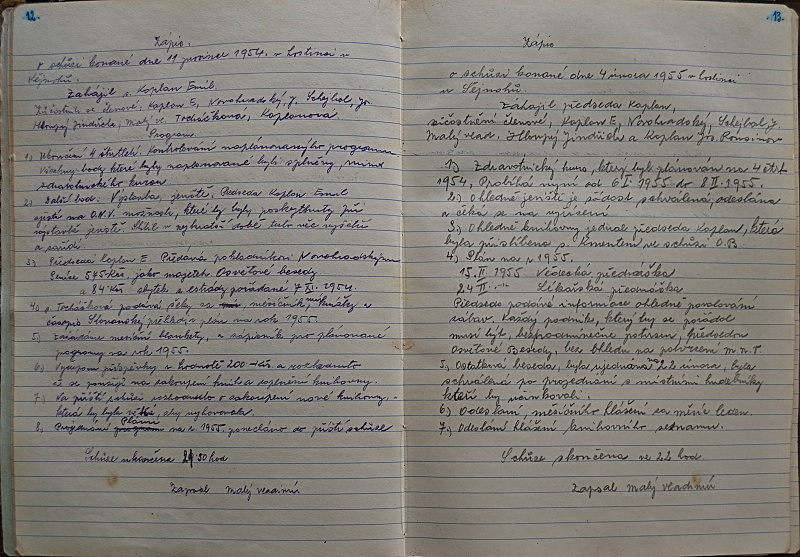 12.
Zápis.
o schůzi konané dne 11 prosince 1954. v hostinci u
Zahájil s. Kaplan Emil
Zúčastnili se členové: Kaplan E, Novohradský, J. Schejbal, Jos.
Hloupý Jindřich, Malý vl. Točnáčková, Kaplanová
Program
1) Ukončení 4 čtvrtletí. Kontrolování naplánovaného programu
Všechny body které byly naplánované byly splněny, mimo
zdravotnického kursu
2) Další bod. Výstavba jeviště. Předseda Kaplan Emil
zjistí na O.N.V. možnosti, které by byly poskytnuty při
výstavbě jeviště. Slíbil v nejkratší době tuto věc vyřídit
3) Předseda Kaplan E. Předává pokladníkovi Novohradskému
peníze 575 Kčs, jako majetek Osvětové besedy
a 84 Kčs zbytek z estrády pořádané 7 XI. 1954.
4) s. Točnáčková podává
časopis Slovanský přehled v plán na rok 1955.
5) blankety, a zápisník pro plánované
programy na rok 1955.
6) příspěvky v hodnotě 200 Kčs a
že se použijí na zakoupení knih a doplnění knihovny.
7) Na příští schůzi rozhodnuto o zakoupení nové knihovny,
která by byla větší, aby vyhovovala.
8) Programové Plánů na r. 1955 ponecháno do příští schůze
Schůze ukončena 21 30 hod
Zapsal Malý vladimír
13.
Zápis
o schůzi konané dne 4 února 1955 v hostinci
u Sejnohů
Zahájil předseda Kaplan,
zúčastnění členové, Kaplan E, Novohradský, Schejbal J.
Malý vlad. Hloupý Jindřich a Kaplan Jos.
1) Zdravotnický kurs, který byl plánován na 4 čtvrt
1954, Probíhá nyní od 6 I. 1955 do 8 II. 1955.
2) Ohledně jeviště je žádost schválená, odeslána
a čeká se na vyřízení
3) Ohledně knihovny jednal předseda Kaplan, která
byla přislíbena s. Kmentem ve schůzi O.B.
4) Plán na r 1955.
15. II 1955 Vědecká přednáška
24 II Lékařská přednáška
Předseda podává informace ohledně povolování
zábav. Každý podnik, který by se pořádal
musí být, bezpodmínečně potvrzen, předsedou
Osvětové Besedy, bez ohledu na potvrzení M.N.V.
5) Ostatková beseda, byla ujednaná na 22 února, byla
schválená po projednání s místními hudebníky
kteří by účinkovali.
6) Odeslání, měsíčního hlášení za měsíc leden.
7) Odeslání hlášení knihovního seznamu.
Schůze skončena ve 22 hod.
Zapsal Malý vladimír